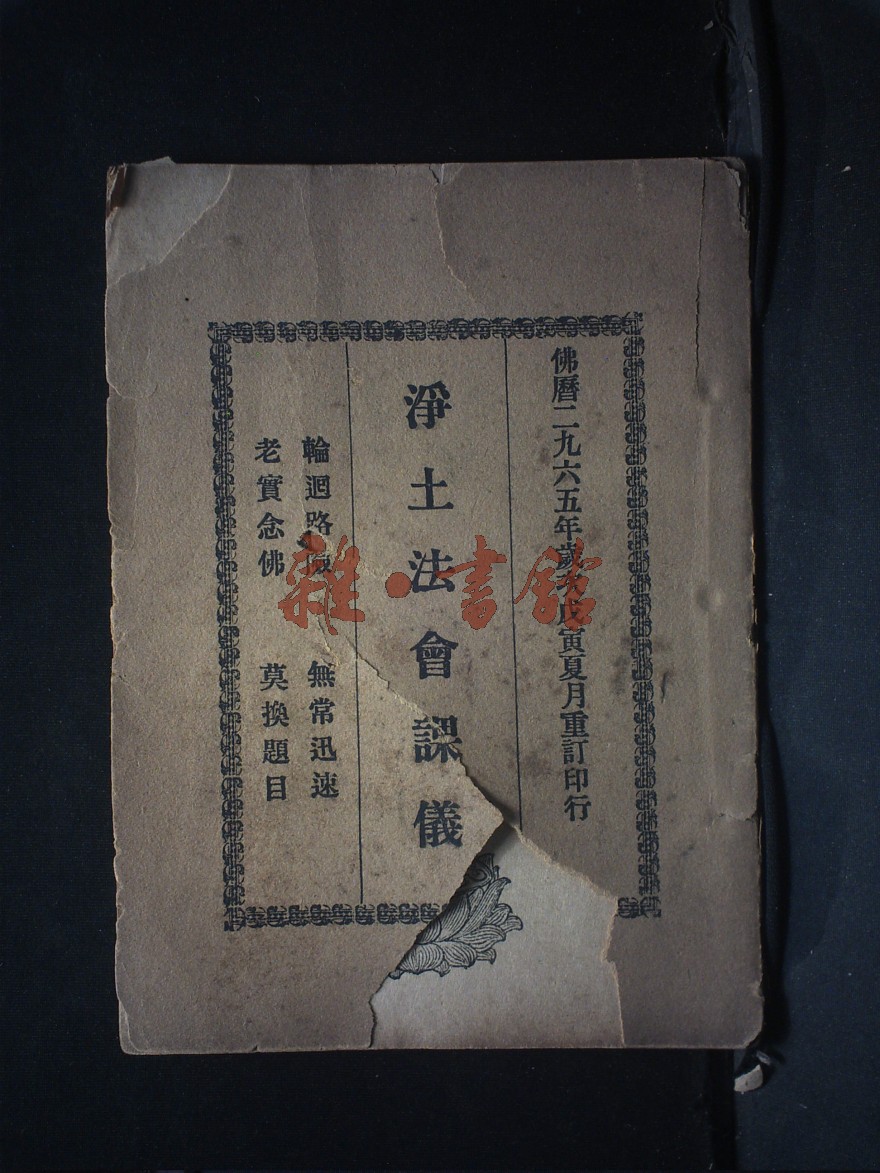 佛曆二九六五年歲次戊寅夏月重訂印行
淨土法會課儀
輪迴路險 無常迅速
老實念佛 莫換題目
雜·書館